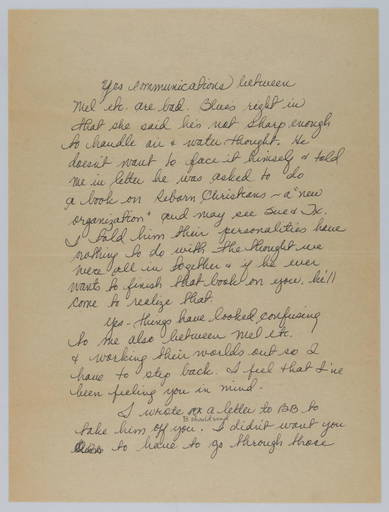 Yes communications between
Mel etc. are bad. Blues right in
that she said he's not sharp enough
to handle air & water thought. He
doesn't want to face it himself & told
me in letter he was asked to do
a book on Reborn Christians – a "new
organization" and may see Sue & Tx.
I told him their personalities have
nothing to do with the thought we
were all in together & if he ever
wants to finish that book on you, he'll
come to realize that.
Yes – things have looked confusing
to me also between Mel etc.
& working their worlds out so I
have to step back. I feel that I've
been feeling you in mind.
I wrote a letter to BB to
take him off you. I didn't want you
to have to go through those